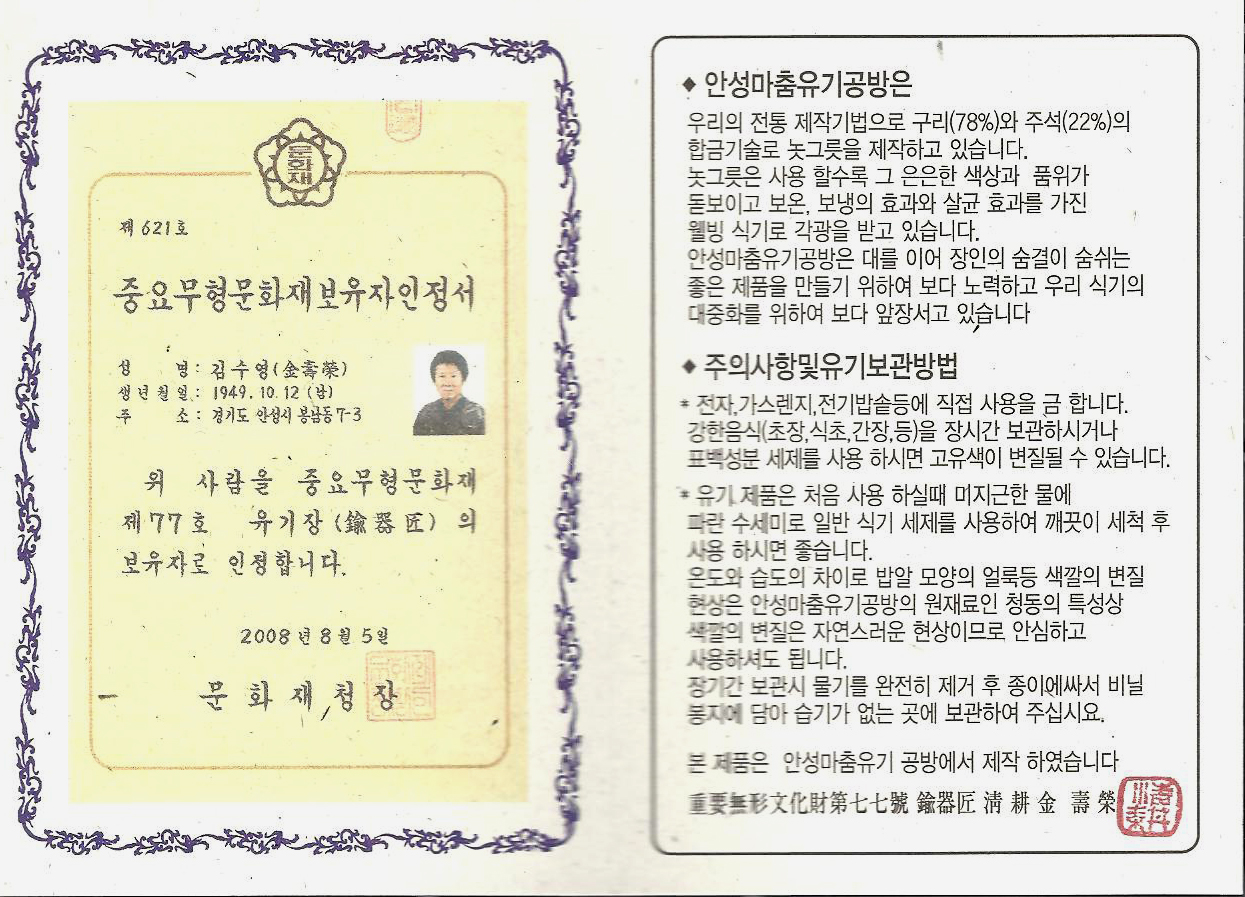 문화재
제 621호
중요무형문화재보유자인정서
성 명 : 김수영(金壽榮)
생년월일 : 1949. 10. 12 (남)
주 소 : 경기도 안성시 봉남동 7-3
위 사람을 중요무형문화재
제77호 유기장(鍮器匠)의
보유자로 인정합니다.
2008년 8월 5일
문화재청장
◆ 안성마춤유기공방은
우리의 전통 제작기법으로 구리(78%)와 주석(22%)의
합금기술로 놋그릇을 제작하고 있습니다.
놋그릇은 사용 할수록 그 은은한 색상과 품위가
돋보이고 보온, 보냉의 효과와 살균 효과를 가진
웰빙 식기로 각광을 받고 있습니다.
안성마춤유기공방은 대를 이어 장인의 숨결이 숨쉬는
좋은 제품을 만들기 위하여 보다 노력하고 우리 식기의
대중화를 위하여 보다 앞장서고 있습니다
◆ 주의사항및유기보관방법
* 전자,가스렌지,전기밥솥등에 직접 사용을 금 합니다.
강한음식(초장,식초,간장,등)을 장시간 보관하시거나
표백성분 세제를 사용 하시면 고유색이 변질될 수 있습니다.
* 유기 제품은 처음 사용 하실때 미지근한 물에
파란 수세미로 일반 식기 세제를 사용하여 깨끗이 세척 후
사용 하시면 좋습니다.
온도와 습도의 차이로 밥알 모양의 얼룩등 색깔의 변질
현상은 안성마춤유기공방의 원재료인 청동의 특성상
색깔의 변질은 자연스러운 현상이므로 안심하고
사용하셔도 됩니다.
장기간 보관시 물기를 완전히 제거 후 종이에싸서 비닐
봉지에 담아 습기가 없는 곳에 보관하여 주십시요.
본 제품은 안성마춤유기 공방에서 제작 하였습니다
重要無形文化財第七七號 鍮器匠 淸耕 金壽榮